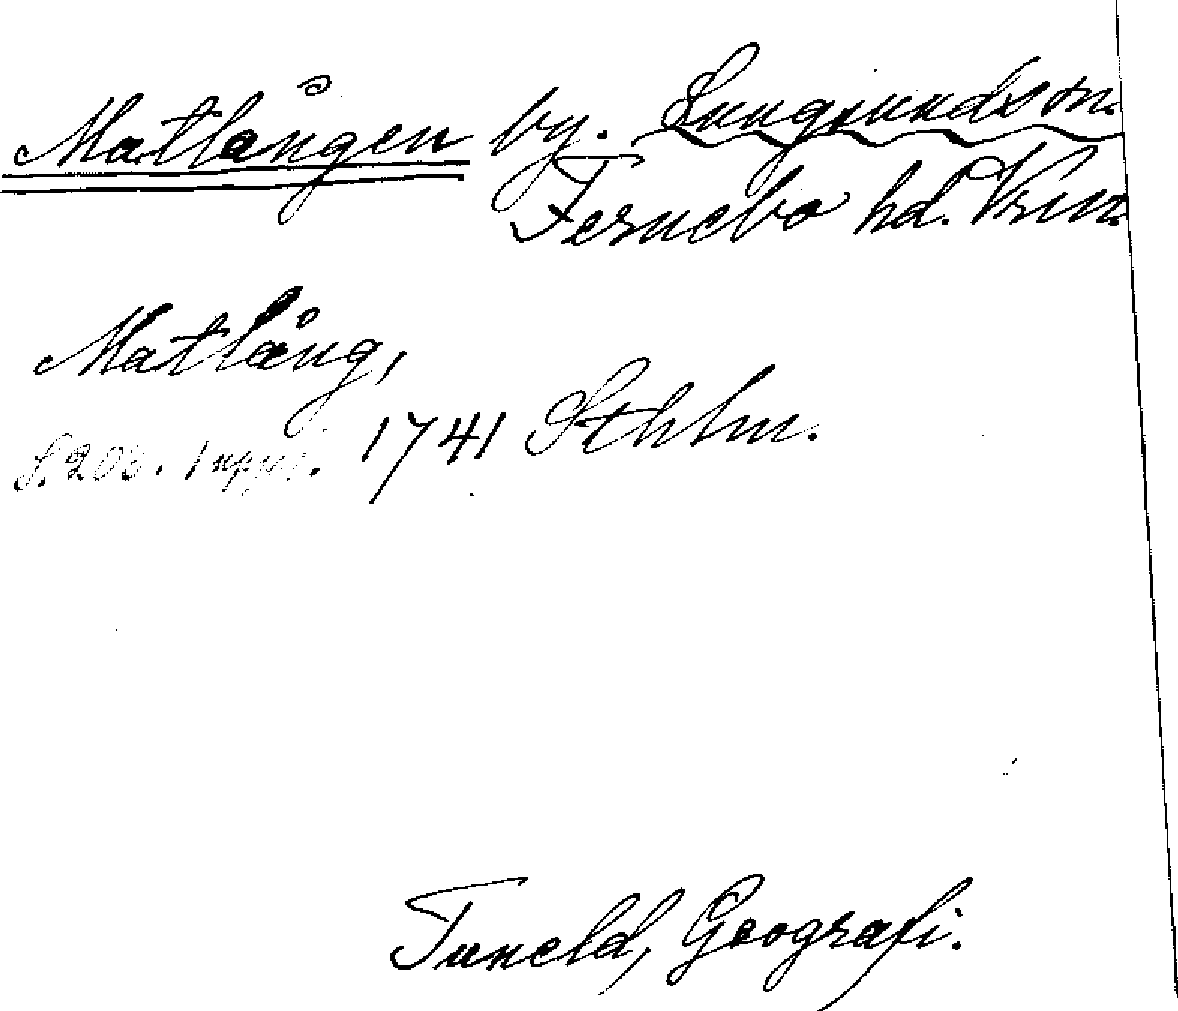 Matlången by. Lungsunds sn.
Fernebo hd. Vrm.
Matlång,
S. 203. 1 uppl. 1741 Sthlm.
Tuneld, Geografi.